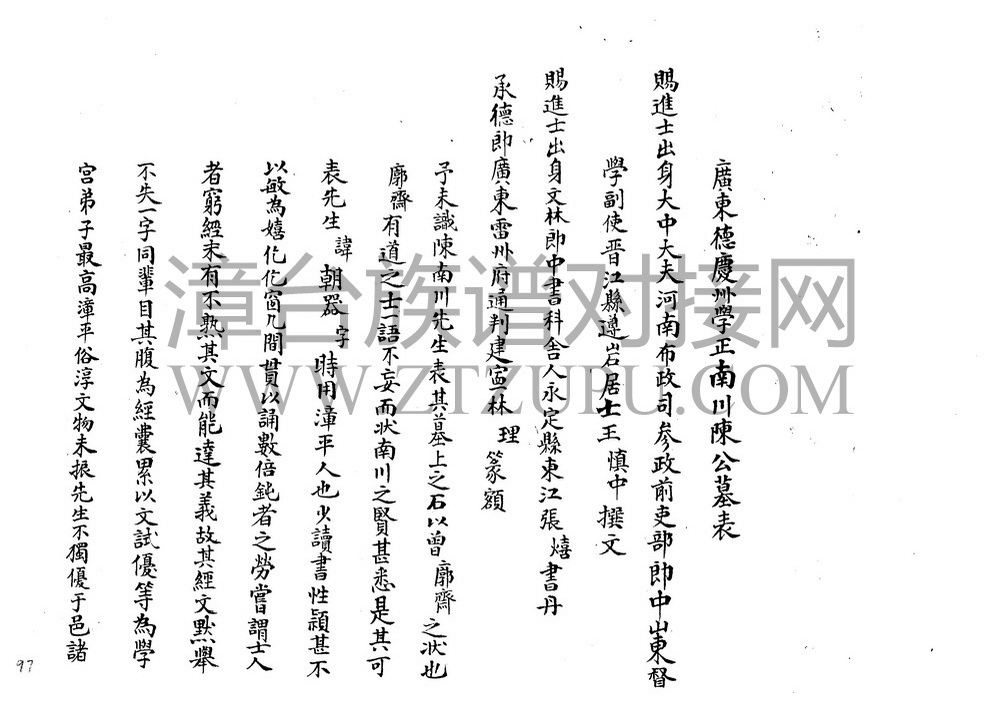 廣東德慶州學正南川陳公墓表
賜進士出身大中大夫河南布政司參政前吏部郎中山東督
學副使晋江縣遵岩居士王慎中撰文
賜進士出身文林郎中書科舍人永定縣東江張熺書丹
承德郎廣東雷州府通判建寧林理篆額
予未識陳南川先生表其墓上之石以曾廓齋之状也
廓齋有道之士一語不妄而状南川之賢甚悉是其可
表先生諱朝器字時用漳平人也少讀書性穎甚不
以敏為嬉仡仡窗几間貫以誦數倍鈍者之勞嘗謂士人
者窮經末有不熟其文而能達其義故其經文默舉
不失一字同輩目其腹為經囊累以文試優等為學
宫弟子最高漳平俗淳文物未振先生不獨優于邑諸
97
漳台族谱对接网
WWW.ZTZUPU.COM